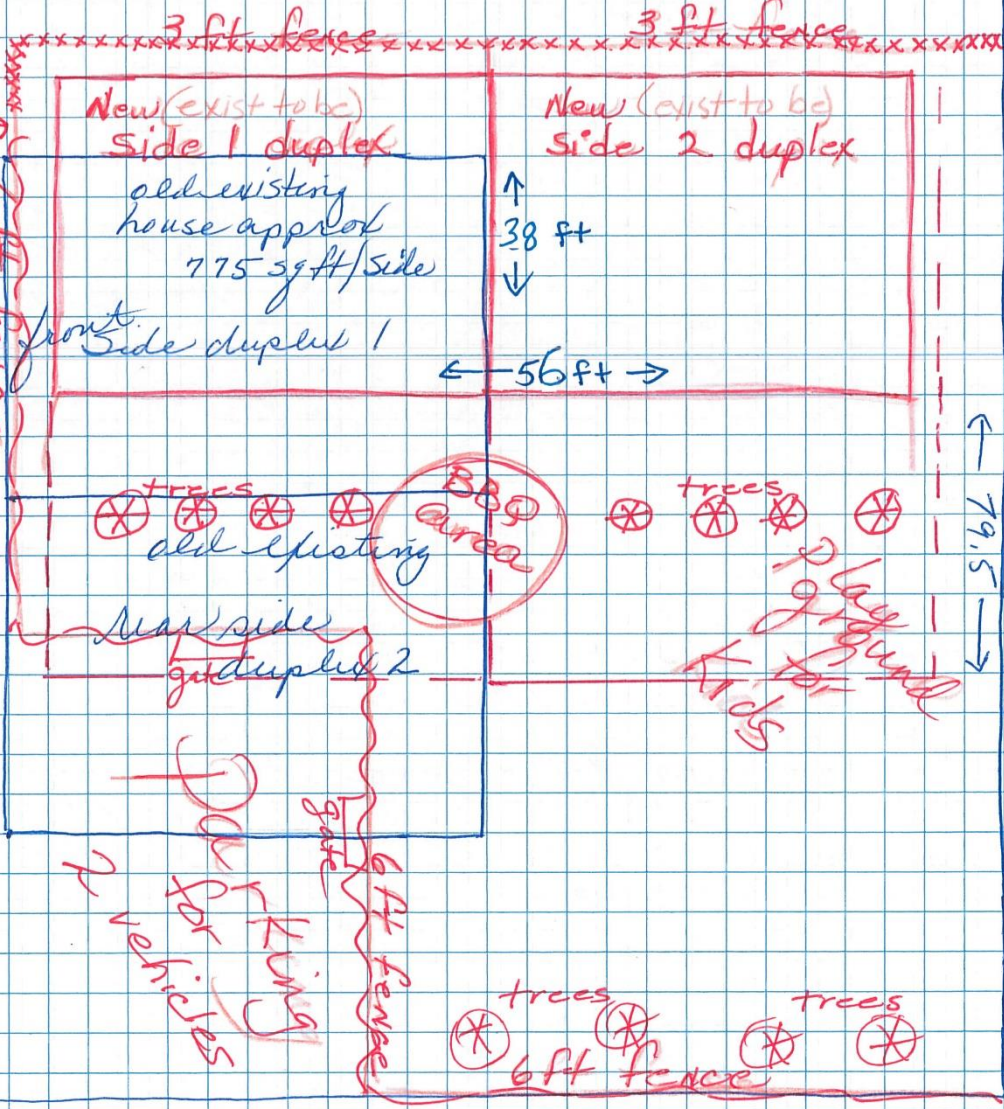 3 ft fence
3 ft fence
New (exist to be)
Side 1 duplex
New (exist to be)
Side 2 duplex
old existing
house approx
775 sq ft/side
front
Side duplex 1
38 ft
56 ft
79.5
trees
BBQ
area
trees
old existing
rear side
duplex 2
gate
play
ground
for
Kids
Parking
for
2 vehicles
gate
6 ft fence
trees
trees
6 ft fence